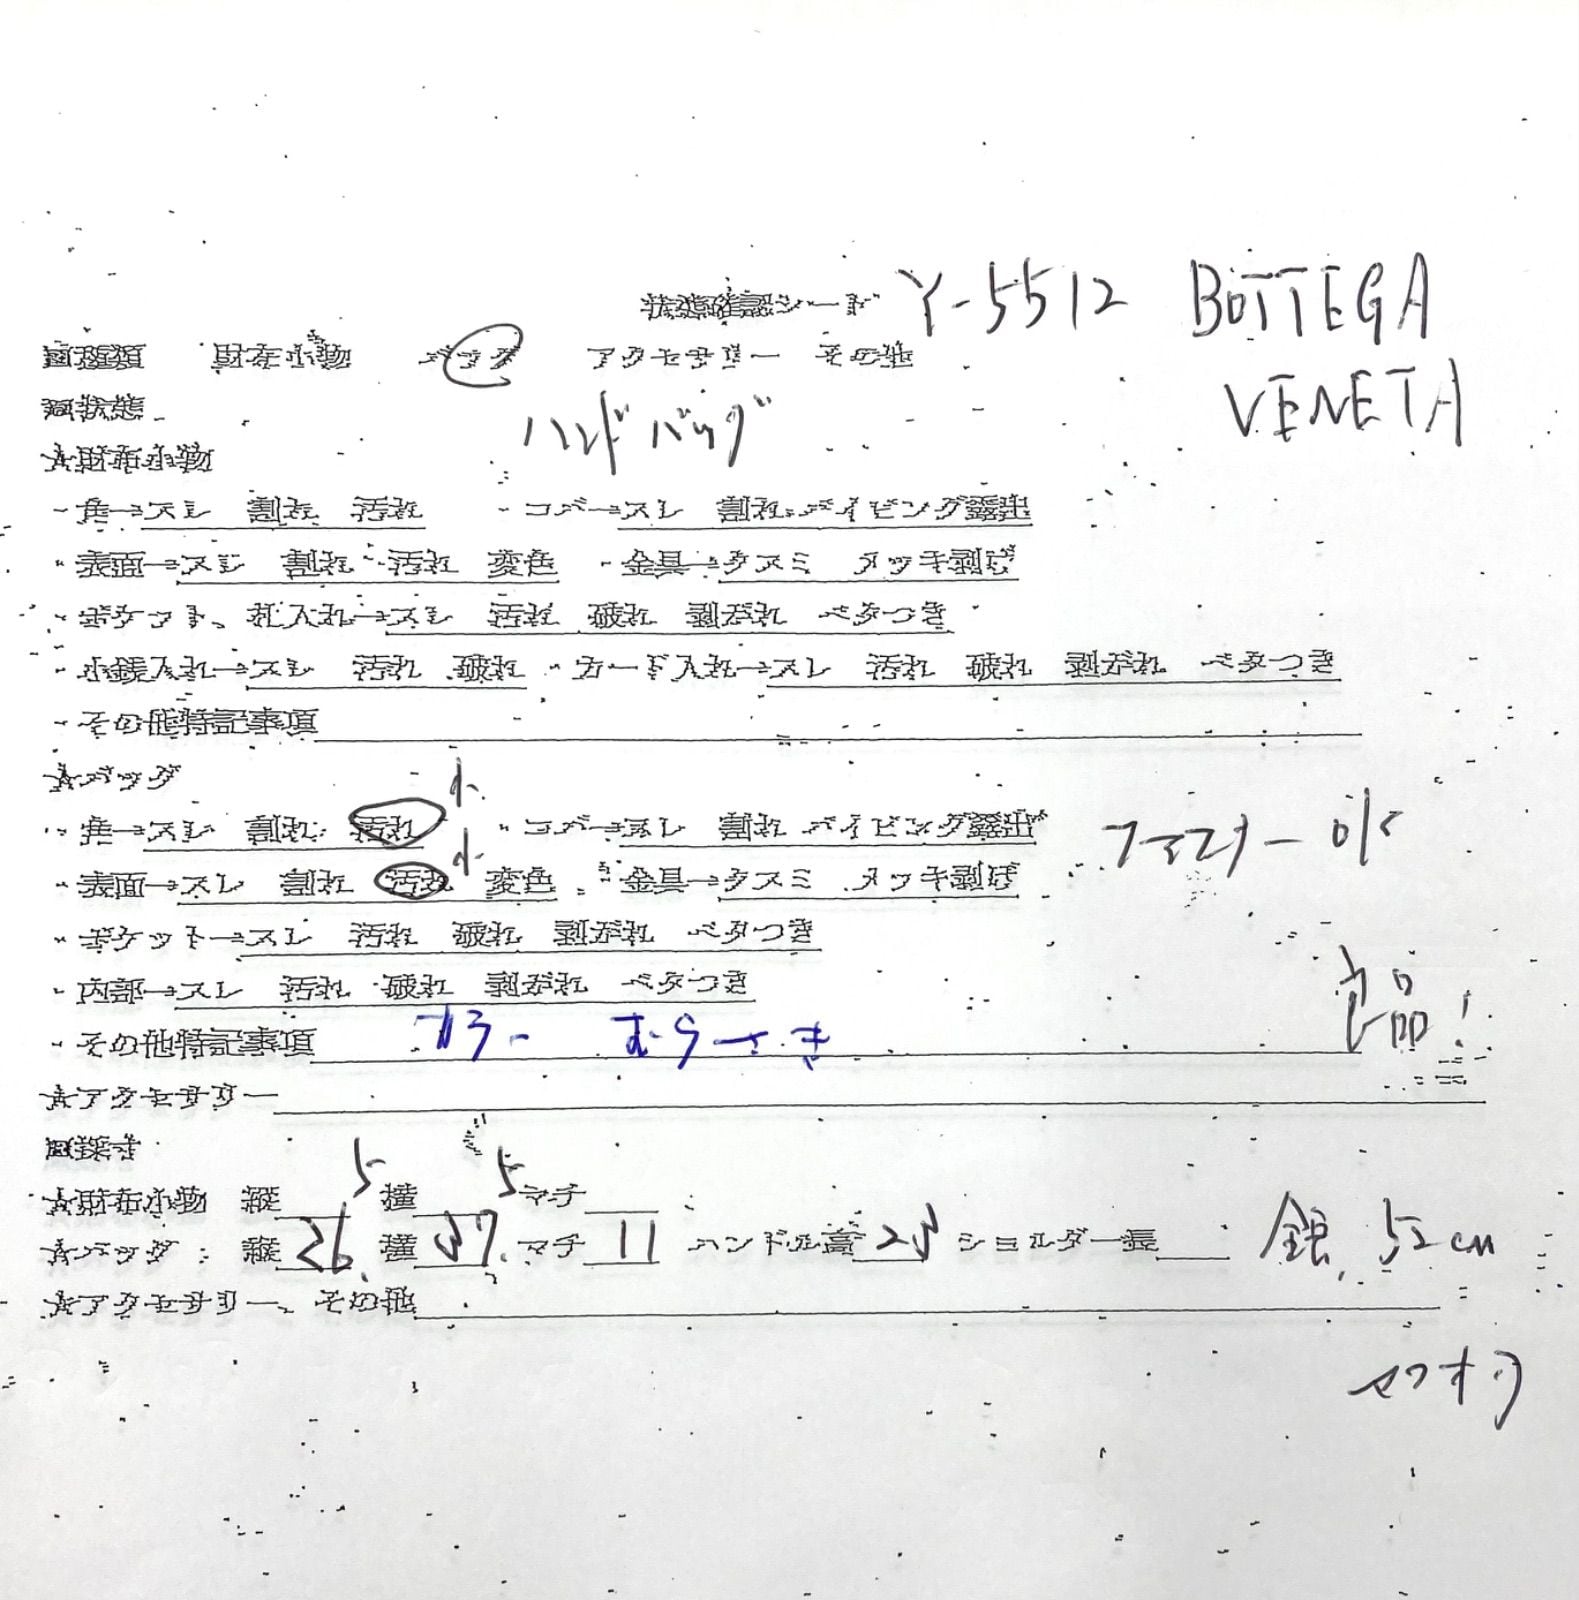 状態確認シート Y-5512 BOTTEGA VENETA
□種類 財布小物 バッグ アクセサリー その他
□状態
ハンドバッグ
☆財布小物
・角→スレ 割れ 汚れ ・コバ→スレ 割れ パイピング露出
・表面→スレ 割れ 汚れ 変色 ・金具→クスミ メッキ剥げ
・ポケット、札入れ→スレ 汚れ 破れ 剥がれ ベタつき
・小銭入れ→スレ 汚れ 破れ ・カード入れ→スレ 汚れ 破れ 剥がれ ベタつき
・その他特記事項
☆バッグ
・角→スレ 割れ 汚れ 小 ・コバ→スレ 割れ パイピング露出
・表面→スレ 割れ 汚れ 小 変色 ・金具→クスミ メッキ剥げ
ファスナー OK
・ポケット→スレ 汚れ 破れ 剥がれ ベタつき
・内部→スレ 汚れ 破れ 剥がれ ベタつき
良品!
・その他特記事項 カラー むらさき
☆アクセサリー
□採寸
☆財布小物 縦 横 マチ
☆バッグ: 縦 26.5 横 37.5 マチ 11 ハンドル高 25 ショルダー長 52cm
☆アクセサリー、その他